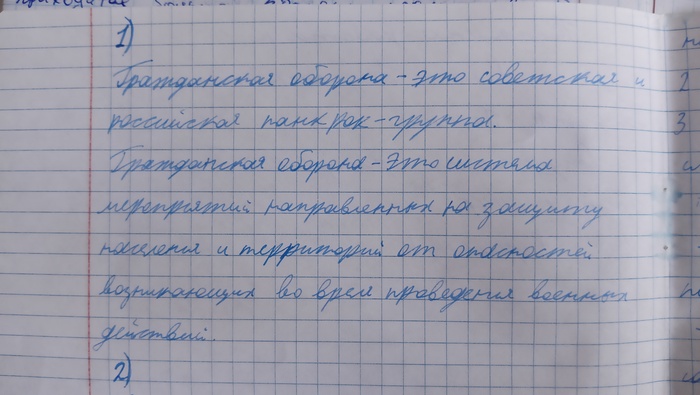 1)
Гражданская оборона - это советская и
российская панк рок-группа.
Гражданская оборона - это система
мероприятий направленных на защиту
населения и территорий от опасностей
возникающих во врем проведения военных
действий.
2)
2
3